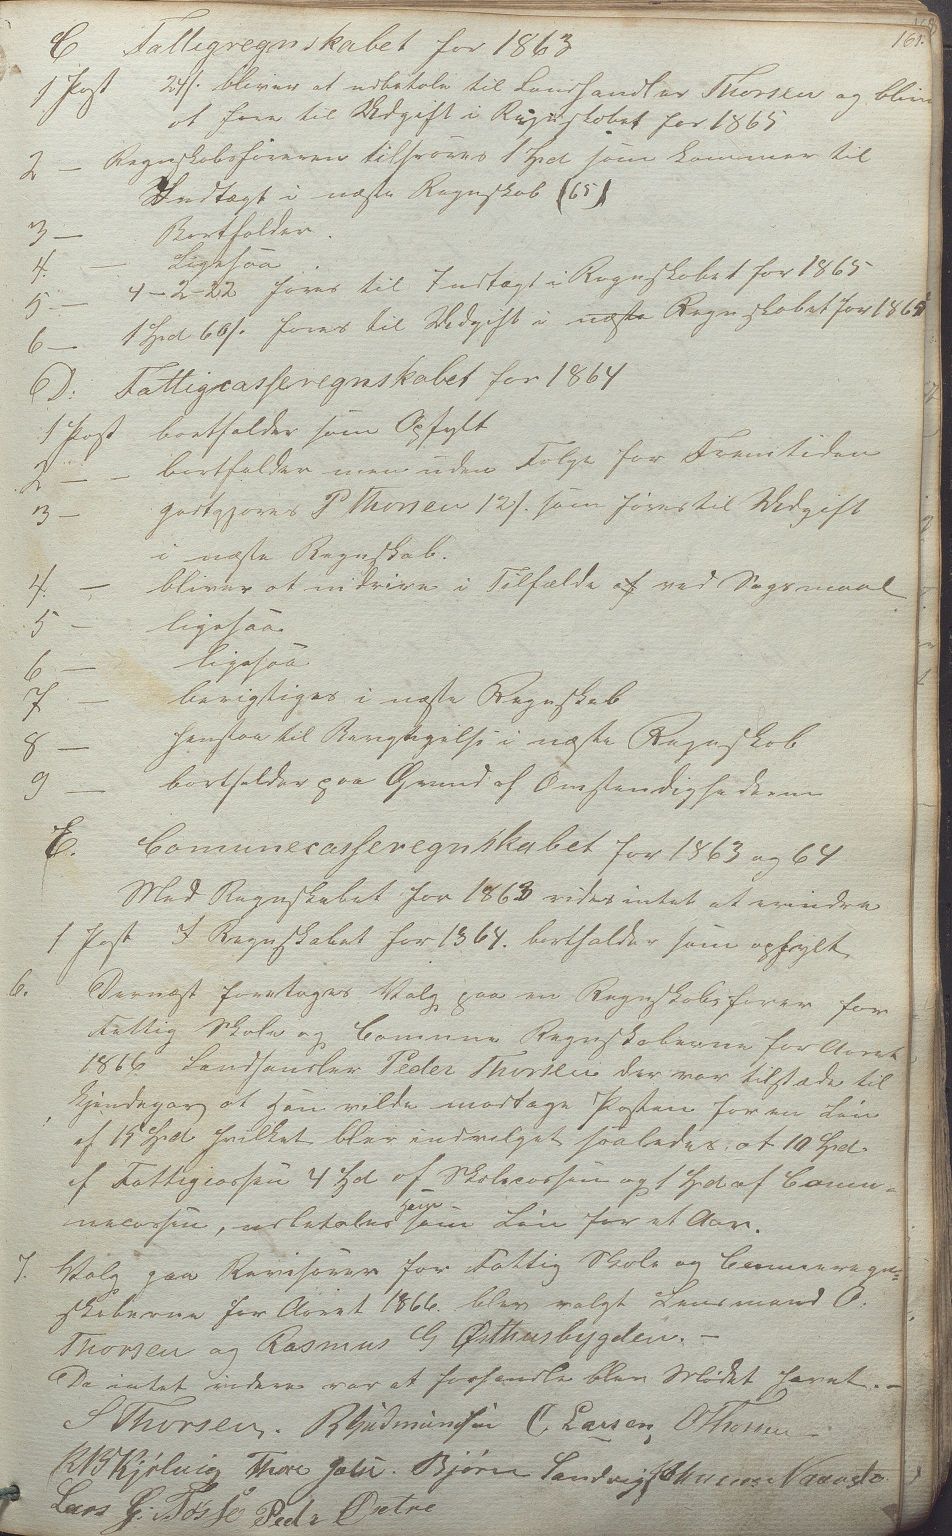 161.
C Fattigregnskabet for 1863
1 Post 24 s. bliver at udbetale til Landhandler Thorsen og bliver
at føre til Udgift i Regnskabet for 1865
2 — Regnskabsføreren tilsvares 1 Spd som kommer til
Indtægt i næste Regnskab (65)
3 — Bortfalder.
4. — Ligesaa
5 — 4-2-22 føres til Indtægt i Regnskabet for 1865
6 — 1 Spd 66 s. føres til Udgift i næste Regnskabet for 1865
D: Fattigcasseregnskabet for 1864
1 Post bortfalder som Opfylt
2 — bortfalder men uden Følge for Fremtiden
3 — godtgjøres P Thorsen 12 s. som føres til Udgift
i næste Regnskab.
4. — bliver at inddrive i Tilfælde af ved Søgsmaal
5 — ligesaa
6 — ligesaa
7 — berigtiges i næste Regnskab
8 — henstaa til Berigtigelse i næste Regnskab
9 — bortfalder paa Grund af Omstendighederne
E. Comunecasseregnskabet for 1863 og 64
Med Regnskabet for 1863 vides intet at erindre
1 Post I Regnskabet for 1864. bortfalder som opfylt
6. Dernæst foretoges Valg paa en Regnskabsfører for
Fattig Skole og Comune Regnskaberne for Aaret
1866 Landhandler Peder Thorsen der var tilstæde til
kjendegav at han vilde modtage Posten for en Løn
af 15 Spd hvilket blev indvilget saaledes at 10 Spd.
af Fattigcassen 4 Spd af Skolecassen og 1 Spd af Comu-
necassen, udbetales ham som Løn for et Aar.
7. Valg paa Revisorer for Fattig Skole og Comuneregn-
skaberne for Aaret 1866. blev valgt Lensmand O.
Thorsen og Rasmus G Østhusbygden. —
Da intet videre var at forhandle blev Mødet hævet. —
S Thorsen. R Gudmunsen C Larsen O Thorsen
K B Kjølvig Thore Bjørn Sandvig
Lars G. Fosse Peder Østre